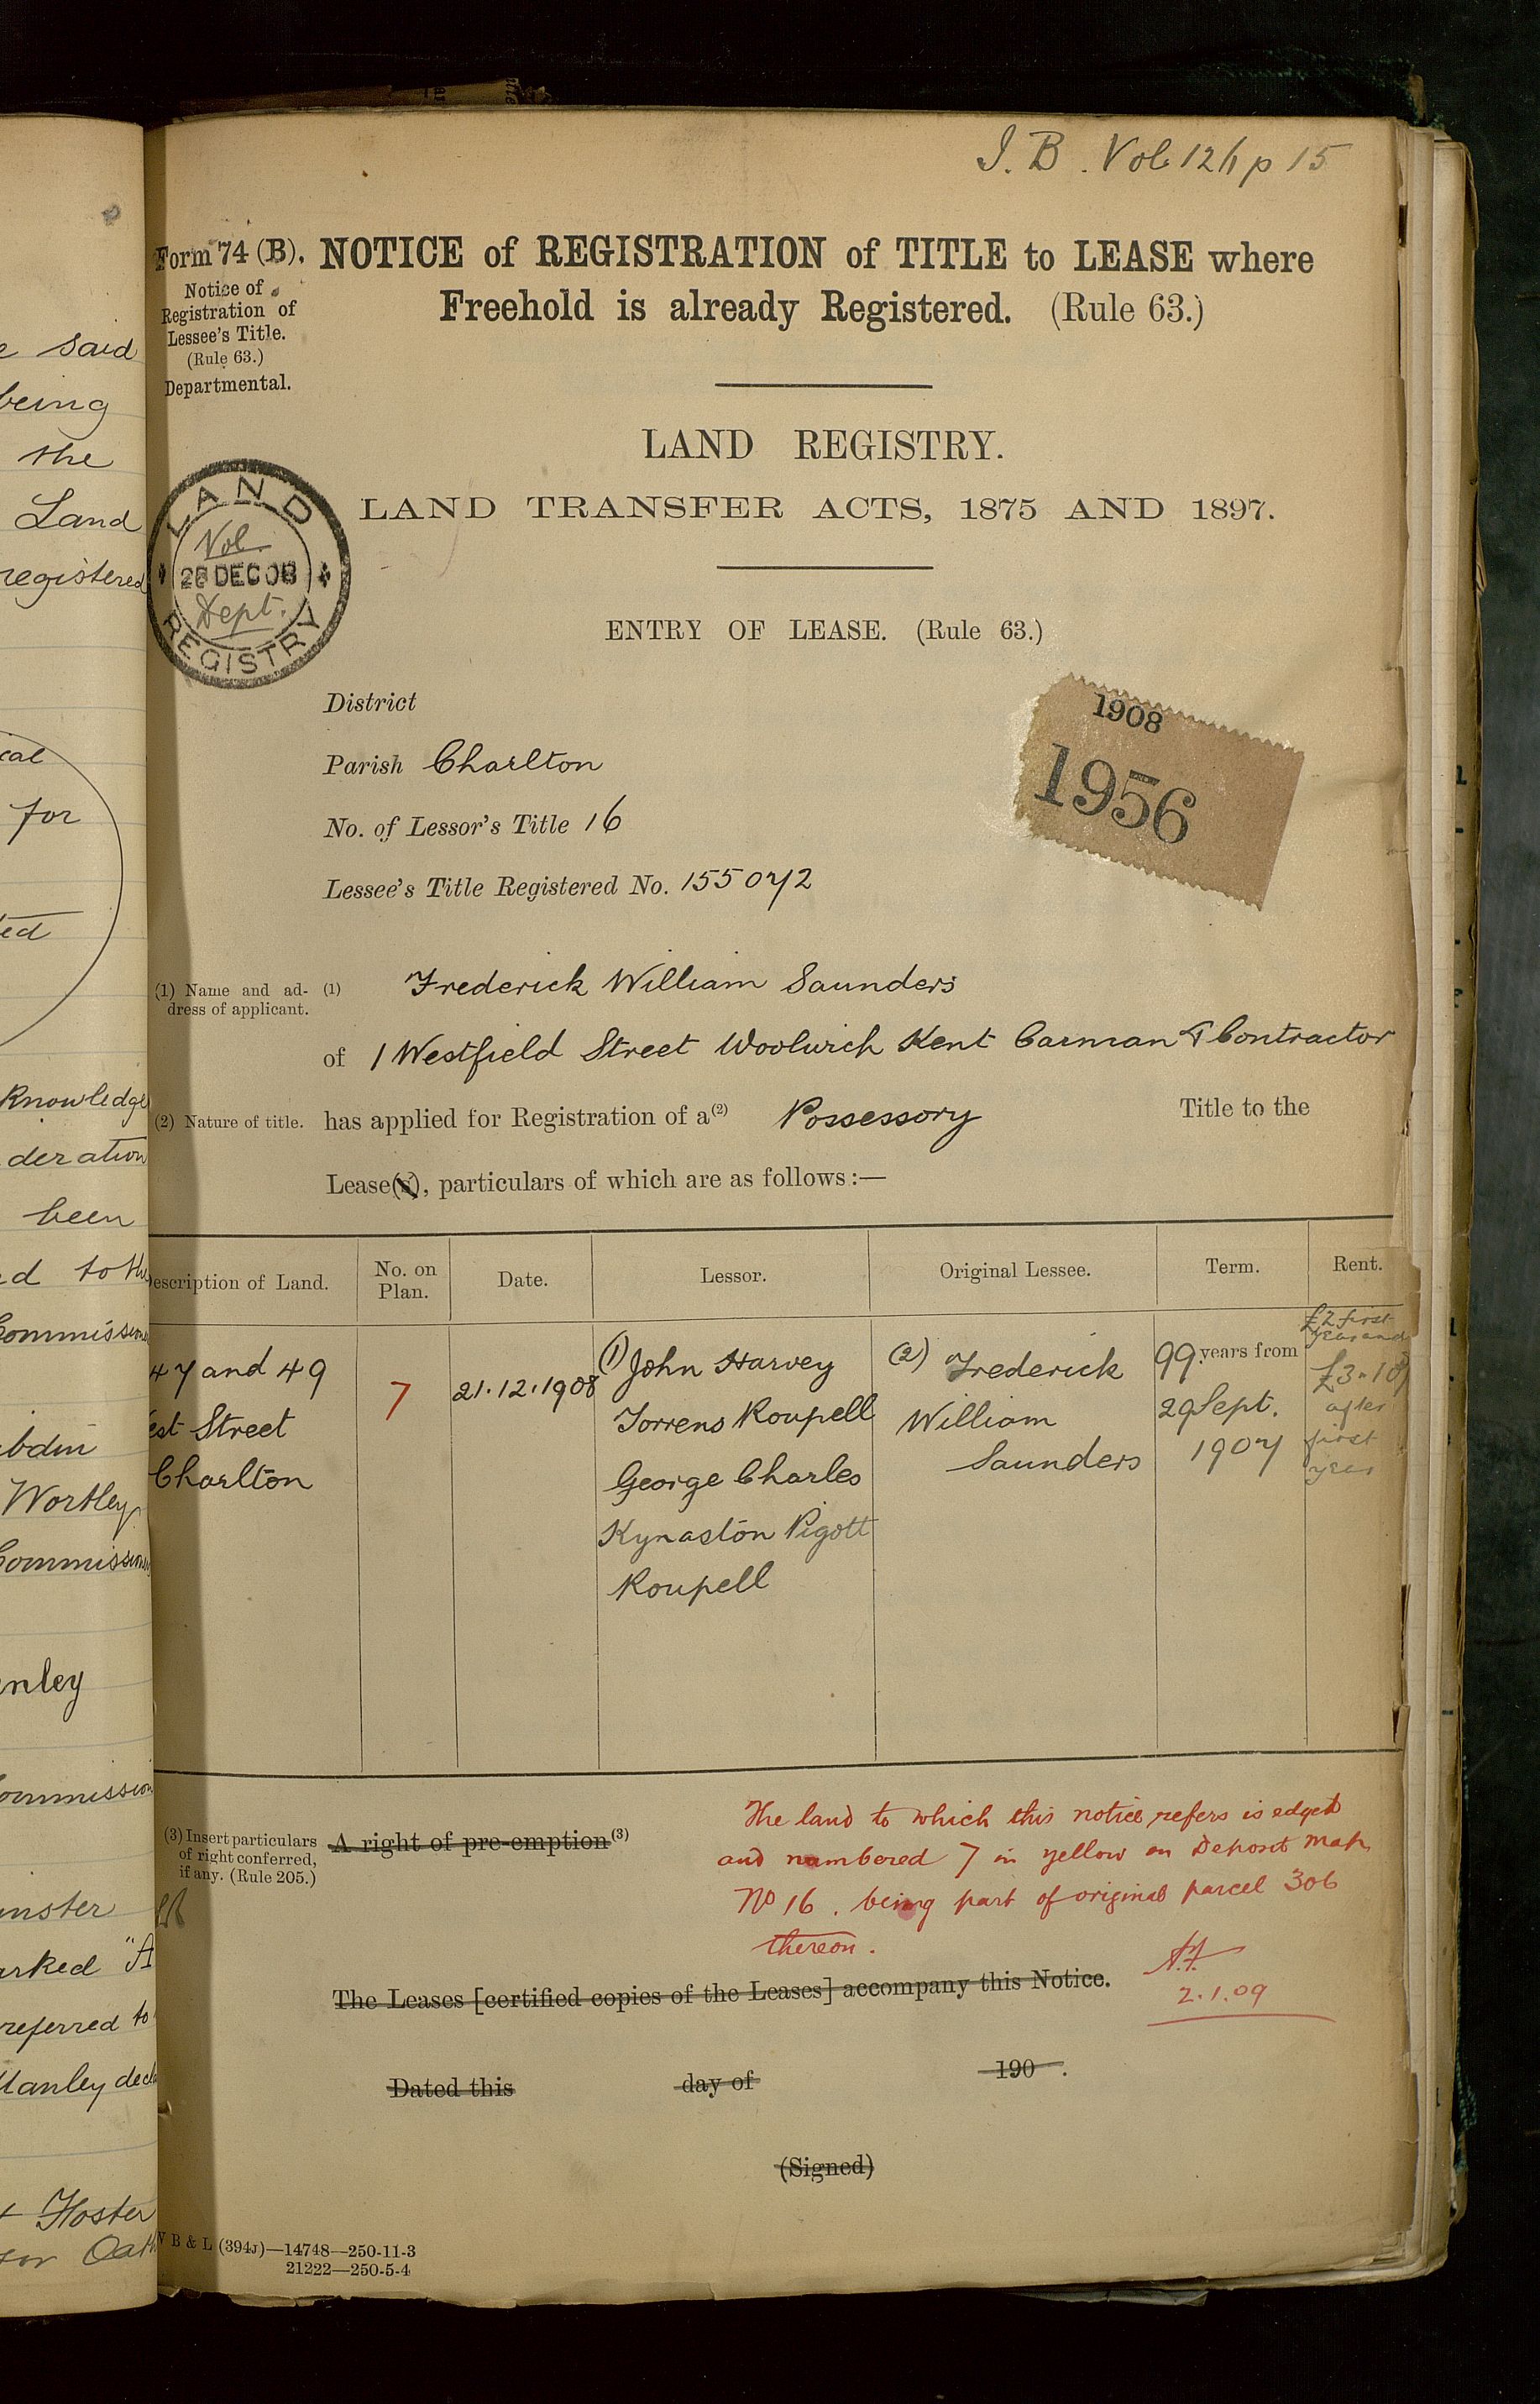 e said
being
the
Land
registered
cal
for
ted
Knowledge
deration
been
d to the
Commission
bdin
Wortley
Commission
nley
ommission
nster
arked "A
referred to
Hanley decl
+ Foster
for Oath
I. B. Vol 126 p 15
Form 74 (B).
Notice of
Registration of
Lessee's Title.
(Rule 63.)
Departmental.
NOTICE of REGISTRATION of TITLE to LEASE where
Freehold is already Registered. (Rule 63.)
LAND REGISTRY.
LAND TRANSFER ACTS, 1875 AND 1897.
LAND
Vol.
28 DEC 08
Dept.
REGISTRY
ENTRY OF LEASE. (Rule 63.)
1908
1956
District
Parish Charlton
No. of Lessor's Title 16
Lessee's Title Registered No. 155072
(1) Name and ad-
dress of applicant.
(1) Frederick William Saunders
of 1 Westfield Street Woolwich Kent Carman & Contractor
(2) Nature of title.
has applied for Registration of a (2) Possessory Title to the
Lease(s), particulars of which are as follows:—
Description of Land. No. on Plan. Date. Lessor. Original Lessee. Term. Rent.
47 and 49
est Street
Charlton
7
21.12.1908
(1) John Harvey
Torrens Roupell
George Charles
Kynaston Pigott
Roupell
(2) Frederick
William
Saunders
99 years from
29 Sept.
1907
£2 first
year and
£3.10/
after
first
year
(3) Insert particulars
of right conferred,
if any. (Rule 205.)
A right of pre-emption (3)
The land to which this notice refers is edged
and numbered 7 in yellow on Deposit map
No 16. being part of original parcel 306
thereon.
A.F.
2.1.09
The Leases [certified copies of the Leases] accompany this Notice.
Dated this day of 190 .
(Signed)
W B & L (394J)—14748—250-11-3
21222—250-5-4